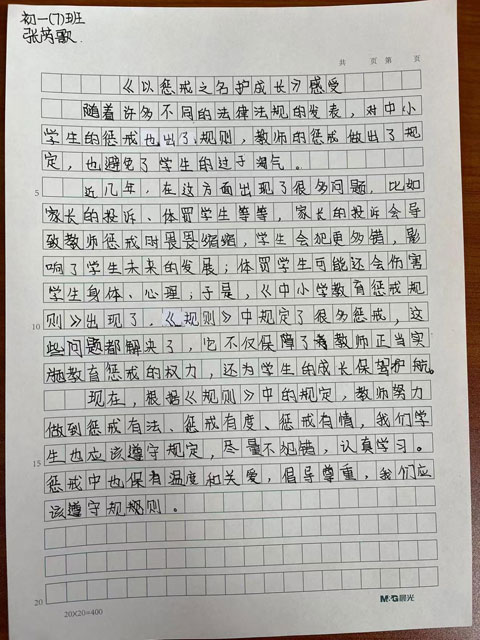 初一(7)班
张芮歌
共 页 第 页
《以惩戒之名护成长》感受
随着许多不同的法律法规的发表，对中小
学生的惩戒也出了规则，教师的惩戒做出了规
定，也避免了学生的过于淘气。
5
近几年，在这方面出现了很多问题，比如
家长的投诉、体罚学生等等，家长的投诉会导
致教师惩戒时畏畏缩缩，学生会犯更多错，影
响了学生未来的发展；体罚学生可能还会伤害
学生身体、心理；于是，《中小学教育惩戒规
10
则》出现了，《规则》中规定了很多惩戒，这
些问题都解决了，它不仅保障了教师正当实
施教育惩戒的权力，还为学生的成长保驾护航。
现在，根据《规则》中的规定，教师努力
做到惩戒有法、惩戒有度、惩戒有情，我们学
15
生也应该遵守规定，尽量不犯错，认真学习。
惩戒中也保有温度和关爱，倡导尊重，我们应
该遵守规规则。
20
20×20=400
M&G晨光